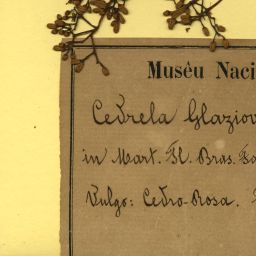 Muséu Naci
Cedrela Glaziov
in Mart. Fl. Bras.
Vulgo: Cedro-Rosa.